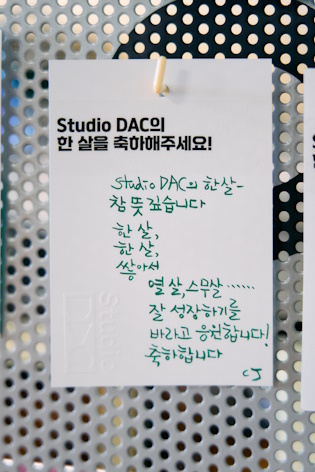 Studio DAC의
한 살을 축하해주세요!
Studio DAC의 한살-
참 뜻 깊습니다
한 살,
한 살,
쌓아서
열 살, 스무살 ......
잘 성장하기를
바라고 응원합니다!
축하합니다
CJ
Studio